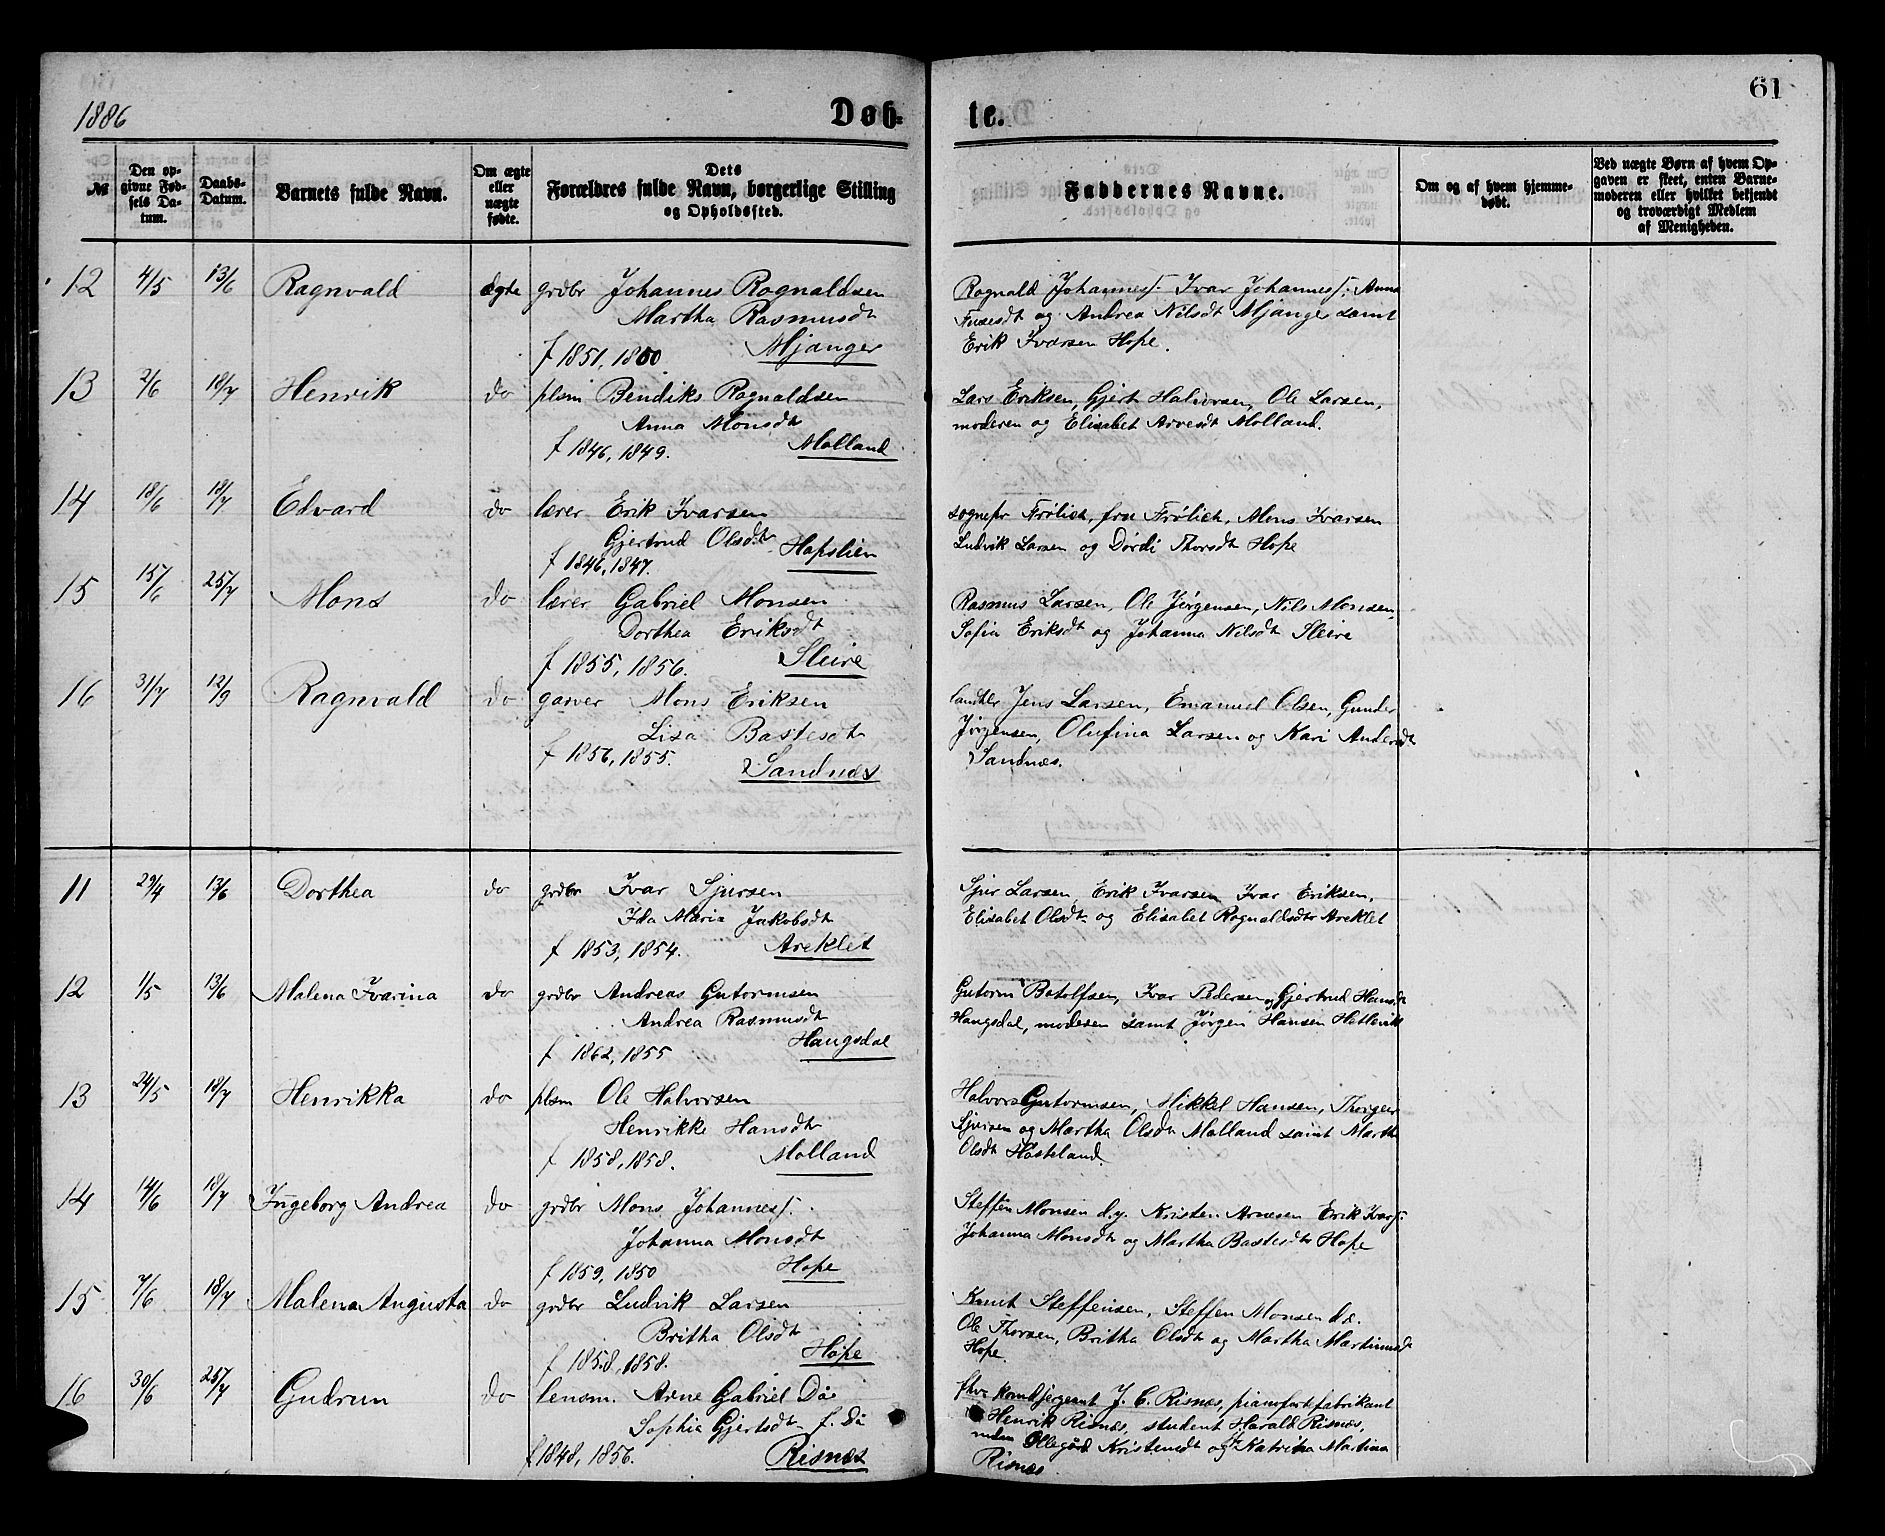 1886
Døb-
te.
61
№
Den op-
givne Fød-
sels Da-
tum.
Daabs-
Datum.
Barnets fulde Navn.
Om ægte
eller
uægte
fødte.
Dets
Forældres fulde Navn, borgerlige Stilling
og Opholdssted.
Faddernes Navne.
Om og af hvem hjemme-
døbt.
Ved uægte Børn af hvem Op-
gaven er skeet, enten Barne-
moderen eller hvilket bekjendt
og troværdigt Medlem
af Menigheden.
12 4/5 13/6 Ragnvald ægte grdbr Johannes Rognaldsen
Martha Rasmusdt
f 1851, 1860. Mjanger
Rognald Johannes/: Ivar Johannes/: Anna
og Andrea Nilsdt Mjanger samt
Erik Ivarsen Hope.
13 2/6 18/7 Henrik do plsm Bendiks Rognaldsen
Anna Monsdt
f 1846, 1849. Molland
Lars Eriksen, Gjert Halvorsen, Ole Larsen,
moderen og Elisabet Arnesdt Molland.
14 18/6 18/7 Edvard do lærer Erik Ivarsen
Gjertrud Olsdt
f 1846, 1847. Hopslien
sognepr Frølich, fru Frølich, Mons Ivarsen
Ludvik Larsen og Dordi Thorsdt Hope
15 15/6 25/7 Mons do lærer Gabriel Monsen
Dorthea Eriksdt
f 1855, 1856. Sleire
Rasmus Larsen, Ole Jørgensen, Nils Monsen,
Sofia Eriksdt og Johanna Nilsdt Sleire
16 31/7 12/9 Ragnvald do garver Mons Eriksen
Lisa Bastesdt
f 1856, 1855. Sandnæs
landhl Jens Larsen, Emanuel Olsen, Gunder
Jørgensen, Olufina Larsen og Kari Andersdt
Sandnæs.
11 29/4 13/6 Dorthea do grdbr Ivar Sjursen
Ida Maria Jakobsdt
f 1853, 1854. Areklet
Sjur Larsen, Erik Ivarsen Ivar Eriksen,
Elisabet Olsdt og Elisabet Rognaldsdtr Areklet
12 1/5 13/6 Malena Ivarina do grdbr Andreas Gutormsen
Andrea Rasmusdt
f 1862, 1855 Haugsdal
Gutorm Botolfsen, Ivar Pedersen og Gjertrud Hansdt
Haugsdal, moderen samt Jørgen Hansen Hetlevik
13 24/5 18/7 Henrikka do plsm Ole Halvorsen
Henrikke Hansdt
f 1858, 1858. Molland
Halvor Gutormsen, Mikkel Hansen, Thorgeir
Sjursen og Martha Olsdt Molland samt Martha
Olsdt Hosteland.
14 14/6 18/7 Ingeborg Andrea do grdbr Mons Johannes/:
Johanna Monsdt
f 1859, 1850 Hope
Steffen Monsen d.y. Kristen Arnesen Erik Ivars/:
Johanna Monsdt og Martha Bastesdtr Hope
15 7/6 18/7 Malena Augusta do grdbr Ludvik Larsen
Britha Olsdt
f 1858, 1858. Hope
Knut Steffensen, Steffen Monsen d.æ.
Ole Thorsen, Britha Olsdt og Martha Martinusdt
Hope.
16 30/6 25/7 Gudrun do lensm. Arne Gabriel Døe
Sophia Gjertsdt f. Dø
f 1848, 1856. Risnæs
fhv. Komdsergeant J. C. Risnæs, pianofortefabrikant
Henrik Risnæs, student Harald Risnæs,
Ollegård Kristensdt og Katrina Martina
Risnæs